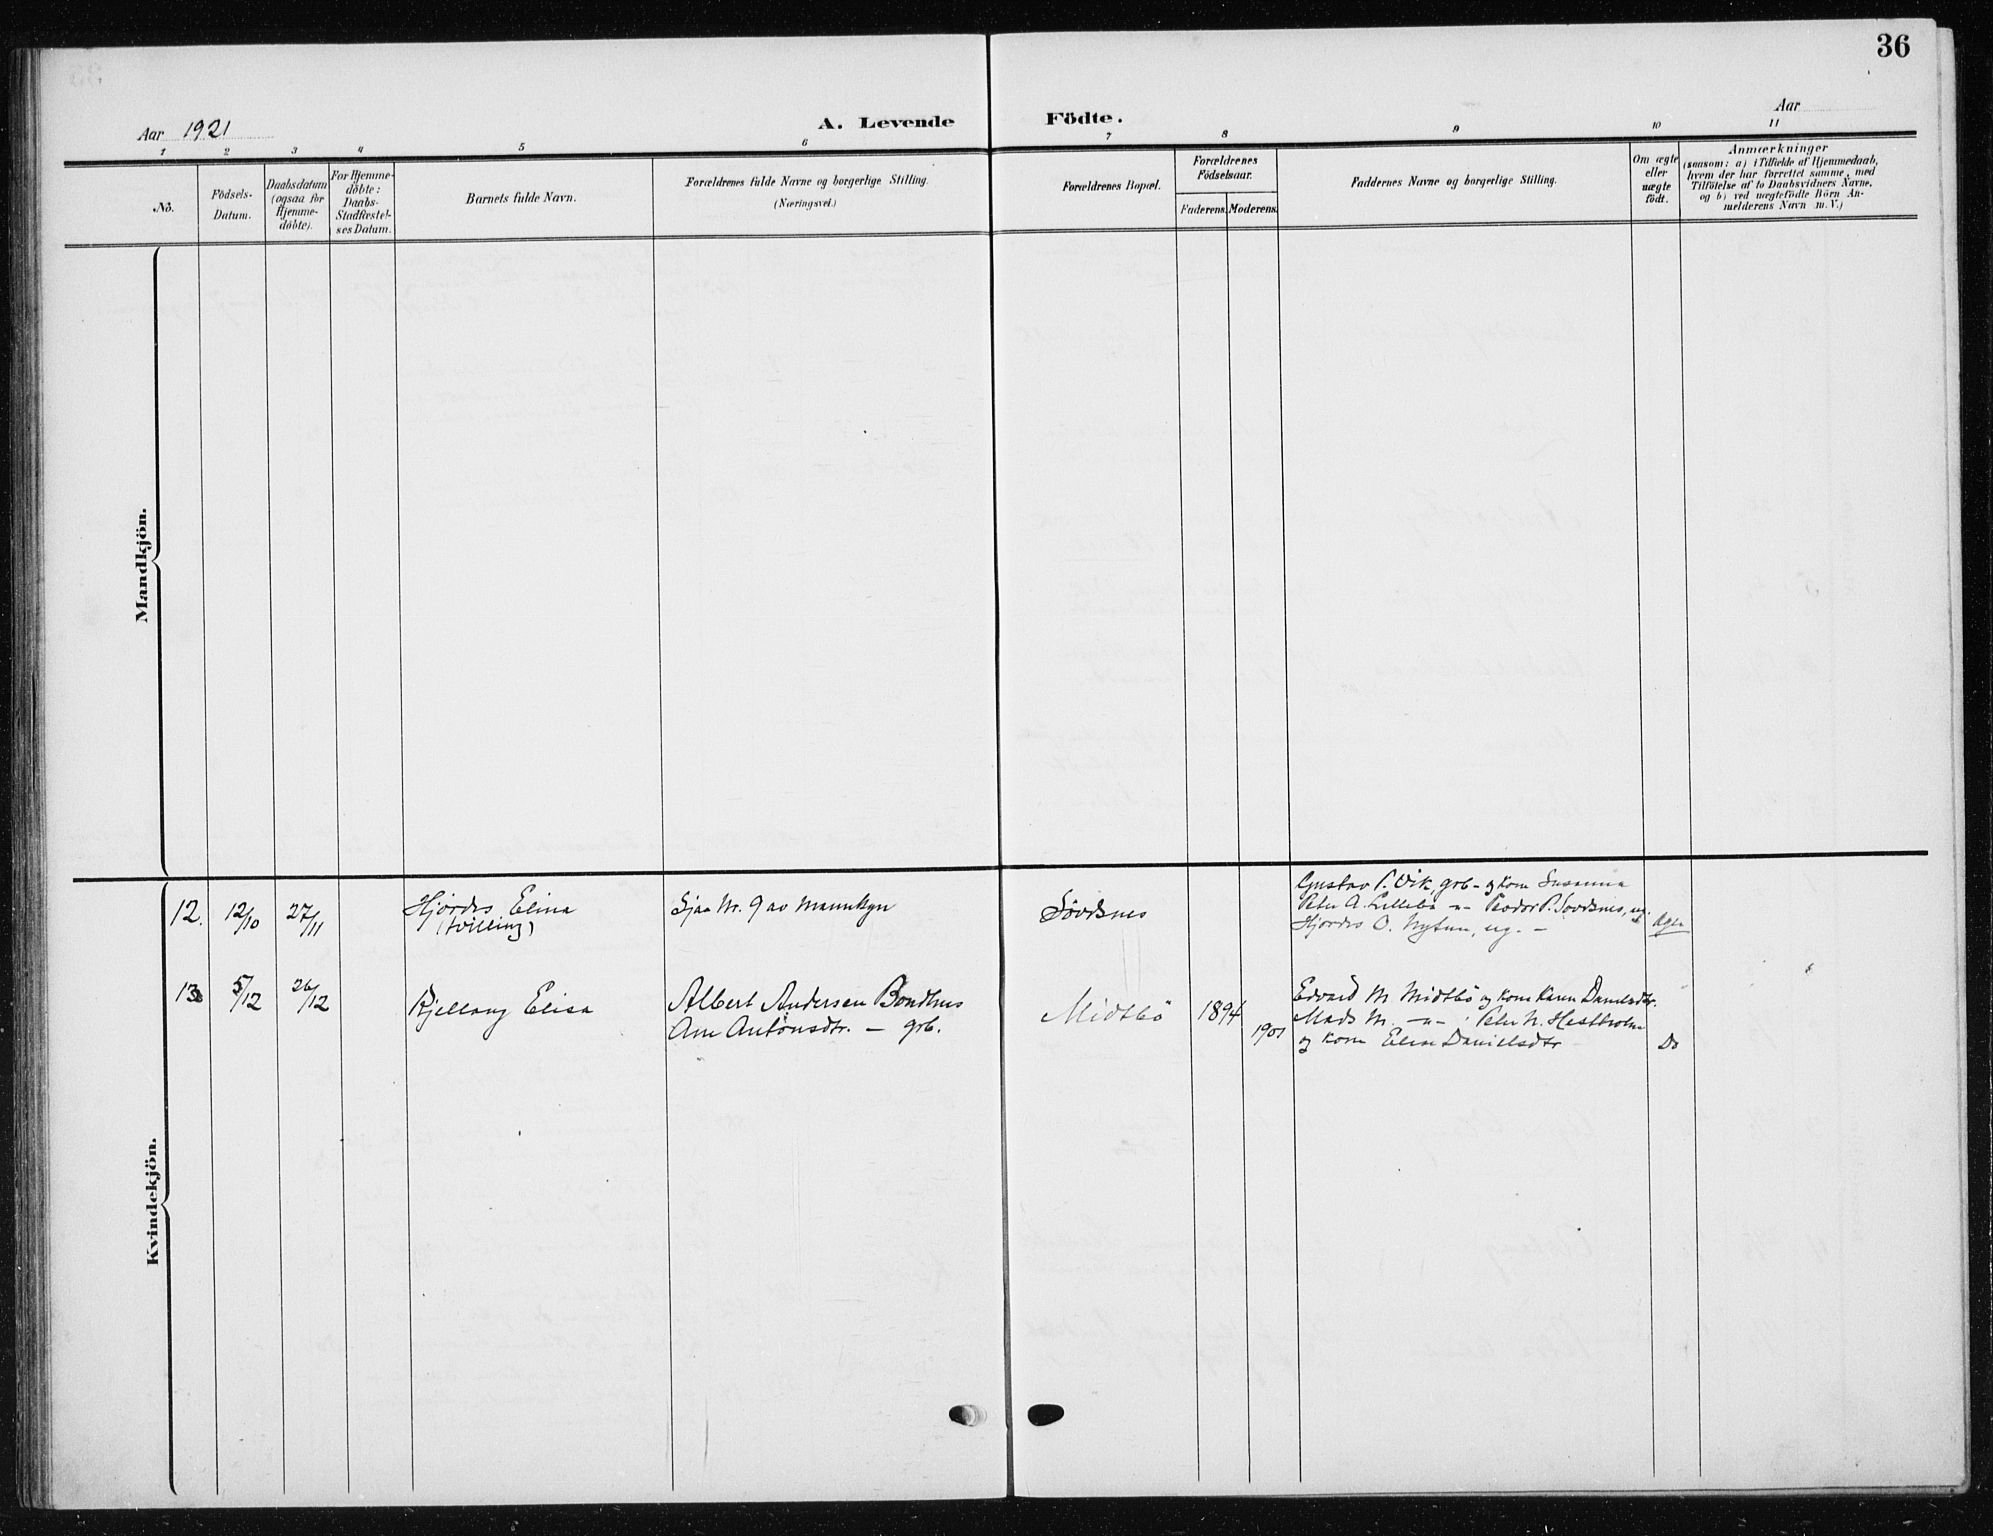 36
Aar 1921
A. Levende Födte.
Aar
1 2 3 4 5 6 7 8 9 10 11
No.
Födsels-
Datum.
Daabsdatum
(ogsaa for
Hjemme-
döbte).
For Hjemme-
döbte:
Daabs-
Stadfæstel-
ses Datum.
Barnets fulde Navn.
Forældrenes fulde Navne og borgerlige Stilling.
(Næringsvei.)
Forældrenes Bopæl.
Forældrenes
Födselsaar.
Faderens. Moderens.
Faddernes Navne og borgerlige Stilling.
Om ægte
eller
uægte
födt.
Anmærkninger
(saasom: a) i Tilfælde af Hjemmedaab,
hvem der har forrettet samme, med
Tilföielse af to Daabsvidners Navne,
og b) ved uægtefödte Börn An-
melderens Navn m. V.)
Mandkjön.
Kvindekjön.
12. 12/10 27/11
Hjördis Elina
(tvilling)
Sjaa Nr. 9 av Mannkyn
Sövdsnes
Gustav P. Vik, grb. og kona Susanna
Peter A. Lillebö -"- Peodor P. Sovdsnes, ug.
Hjördis O. Nytun, ug. -
13 5/12 26/12
Kjellaug Elisa
Albert Andersen Bondhus
Ane Antonsdtr. - grb.
Midtbö
1894
1901
Edvard M Midtbö og kona Karen Danielsdtr.
Mads M. -"- Peter N. Hestholm
og kona Elise Danielsdtr
Do